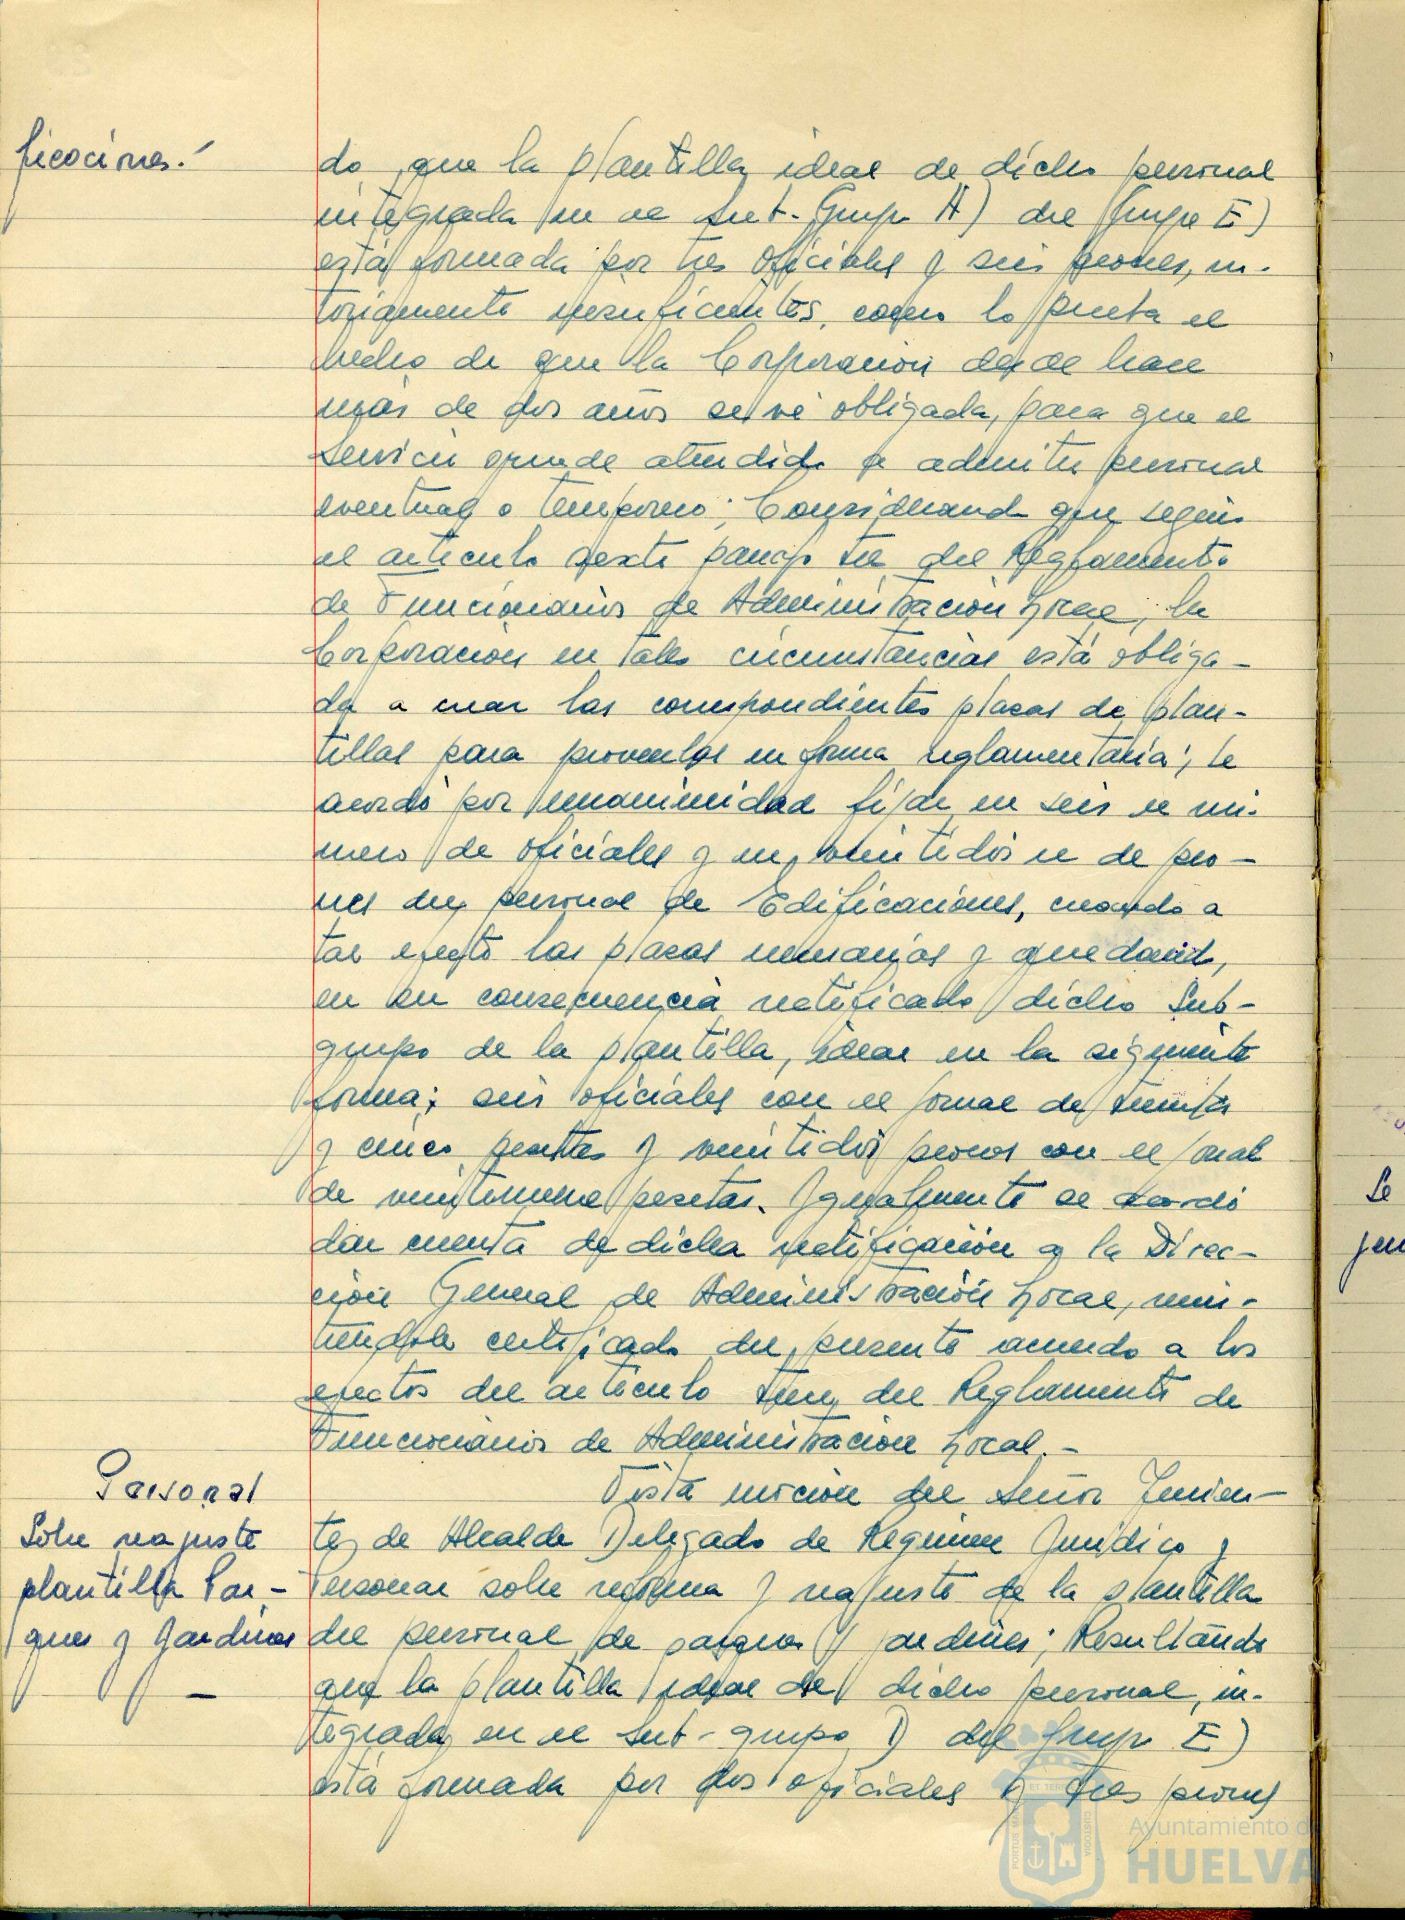 ficaciones.-
do que la plantilla ideal de dicho personal
integrada en el Sub-Grupo A) del Grupo E)
está formada por tres oficiales y seis peones, no-
toriamente insuficientes, como lo prueba el
hecho de que la Corporación desde hace
más de dos años se vé obligada, para que el
servicio quede atendido a admitir personal
eventual o temporero; Considerando que según
el artículo sexto párrafo del Reglamento
de Funcionarios de Administración Local, la
Corporación en tales circunstancias está obliga-
da a crear las correspondientes plazas de plan-
tillas para proveerlas en forma reglamentaria; se
acordó por unanimidad fijar en seis el nú-
mero de oficiales y en veintidós el de peo-
nes del personal de Edificaciones, creando a
tal efecto las plazas necesarias y quedando,
en su consecuencia rectificado dicho Sub-
grupo de la plantilla, ideal en la siguiente
forma; seis oficiales con el jornal de treinta
y cinco pesetas y veintidós peones con el jornal
de veintinueve pesetas. Igualmente se acordó
dar cuenta de dicha rectificación a la Direc-
ción General de Administración Local, remi-
tiéndole certificado del presente acuerdo a los
efectos del artículo del Reglamento de
Funcionarios de Administración Local.-
Personal
Sobre reajuste
plantilla Par-
ques y Jardines
—
Vista moción del Señor Tenien-
te de Alcalde Delegado de Regimen Jurídico y
Personal sobre reforma y reajuste de la plantilla
del personal de parques y jardines; Resultando
que la plantilla ideal de dicho personal, in-
tegrada en el Sub-grupo D) del Grupo E)
está formada por dos oficiales y tres peones
Se
PORTUS MARIS
ET TERRAE
CUSTODIA
Ayuntamiento de
HUELVA